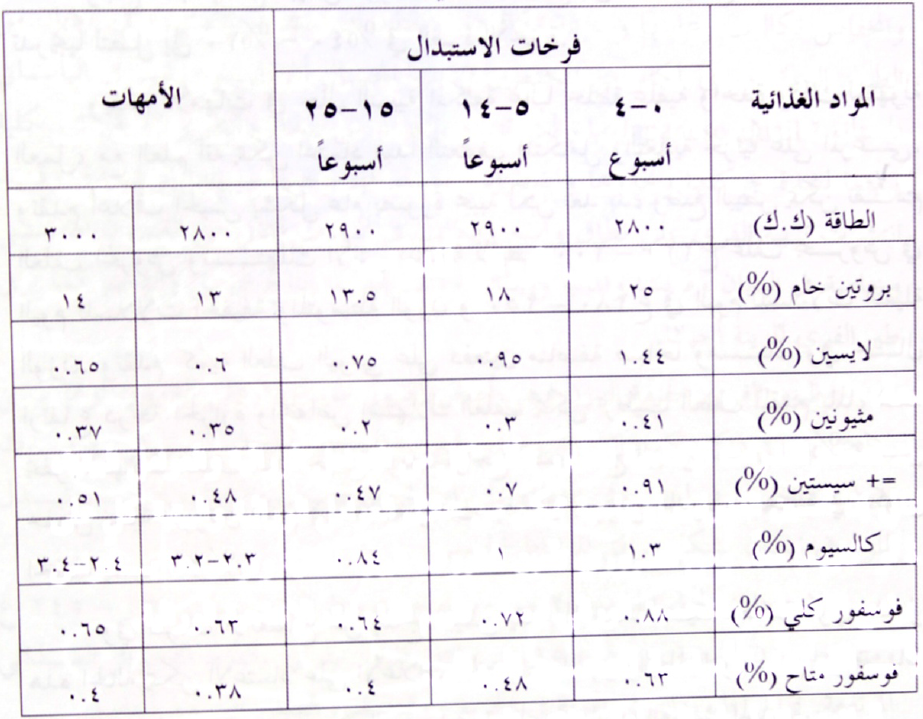 فرخات الاستبدال
المواد الغذائية ٠-٤ ٥-١٤ ١٥-٢٥ الأمهات
أسبوع أسبوعاً أسبوعاً
الطاقة (ك.ك) ٢٨٠٠ ٢٩٠٠ ٢٩٠٠ ٢٨٠٠ ٣٠٠٠
بروتين خام (%) ٢٥ ١٨ ١٣.٥ ١٣ ١٤
لايسين (%) ١.٤٤ ٠.٩٥ ٠.٧٥ ٠.٦ ٠.٦٥
مثيونين (%) ٠.٤١ ٠.٣ ٠.٢ ٠.٣٥ ٠.٣٧
=+ سيستين (%) ٠.٩١ ٠.٧ ٠.٤٧ ٠.٤٨ ٠.٥١
كالسيوم (%) ١.٣ ١ ٠.٨٤ ٢.٣-٣.٢ ٢.٤-٣.٤
فوسفور كلي (%) ٠.٨٨ ٠.٧٢ ٠.٦٤ ٠.٦٣ ٠.٦٥
فوسفور متاح (%) ٠.٦٣ ٠.٤٨ ٠.٤ ٠.٣٨ ٠.٤